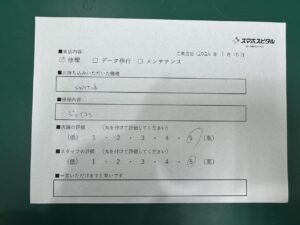 スマホスピタル
■来店内容
ご来店日 2026年 1月16日
☑修理 □データ移行 □メンテナンス
■お持ち込みいただいた機種
switch
■修理内容
ジョイコン
■店舗の評価 (丸を付けて評価してください)
(低) 1 ・ 2 ・ 3 ・ 4 ・ 5 (高)
■スタッフの評価 (丸を付けて評価してください)
(低) 1 ・ 2 ・ 3 ・ 4 ・ 5 (高)
■一言いただけますと幸いです